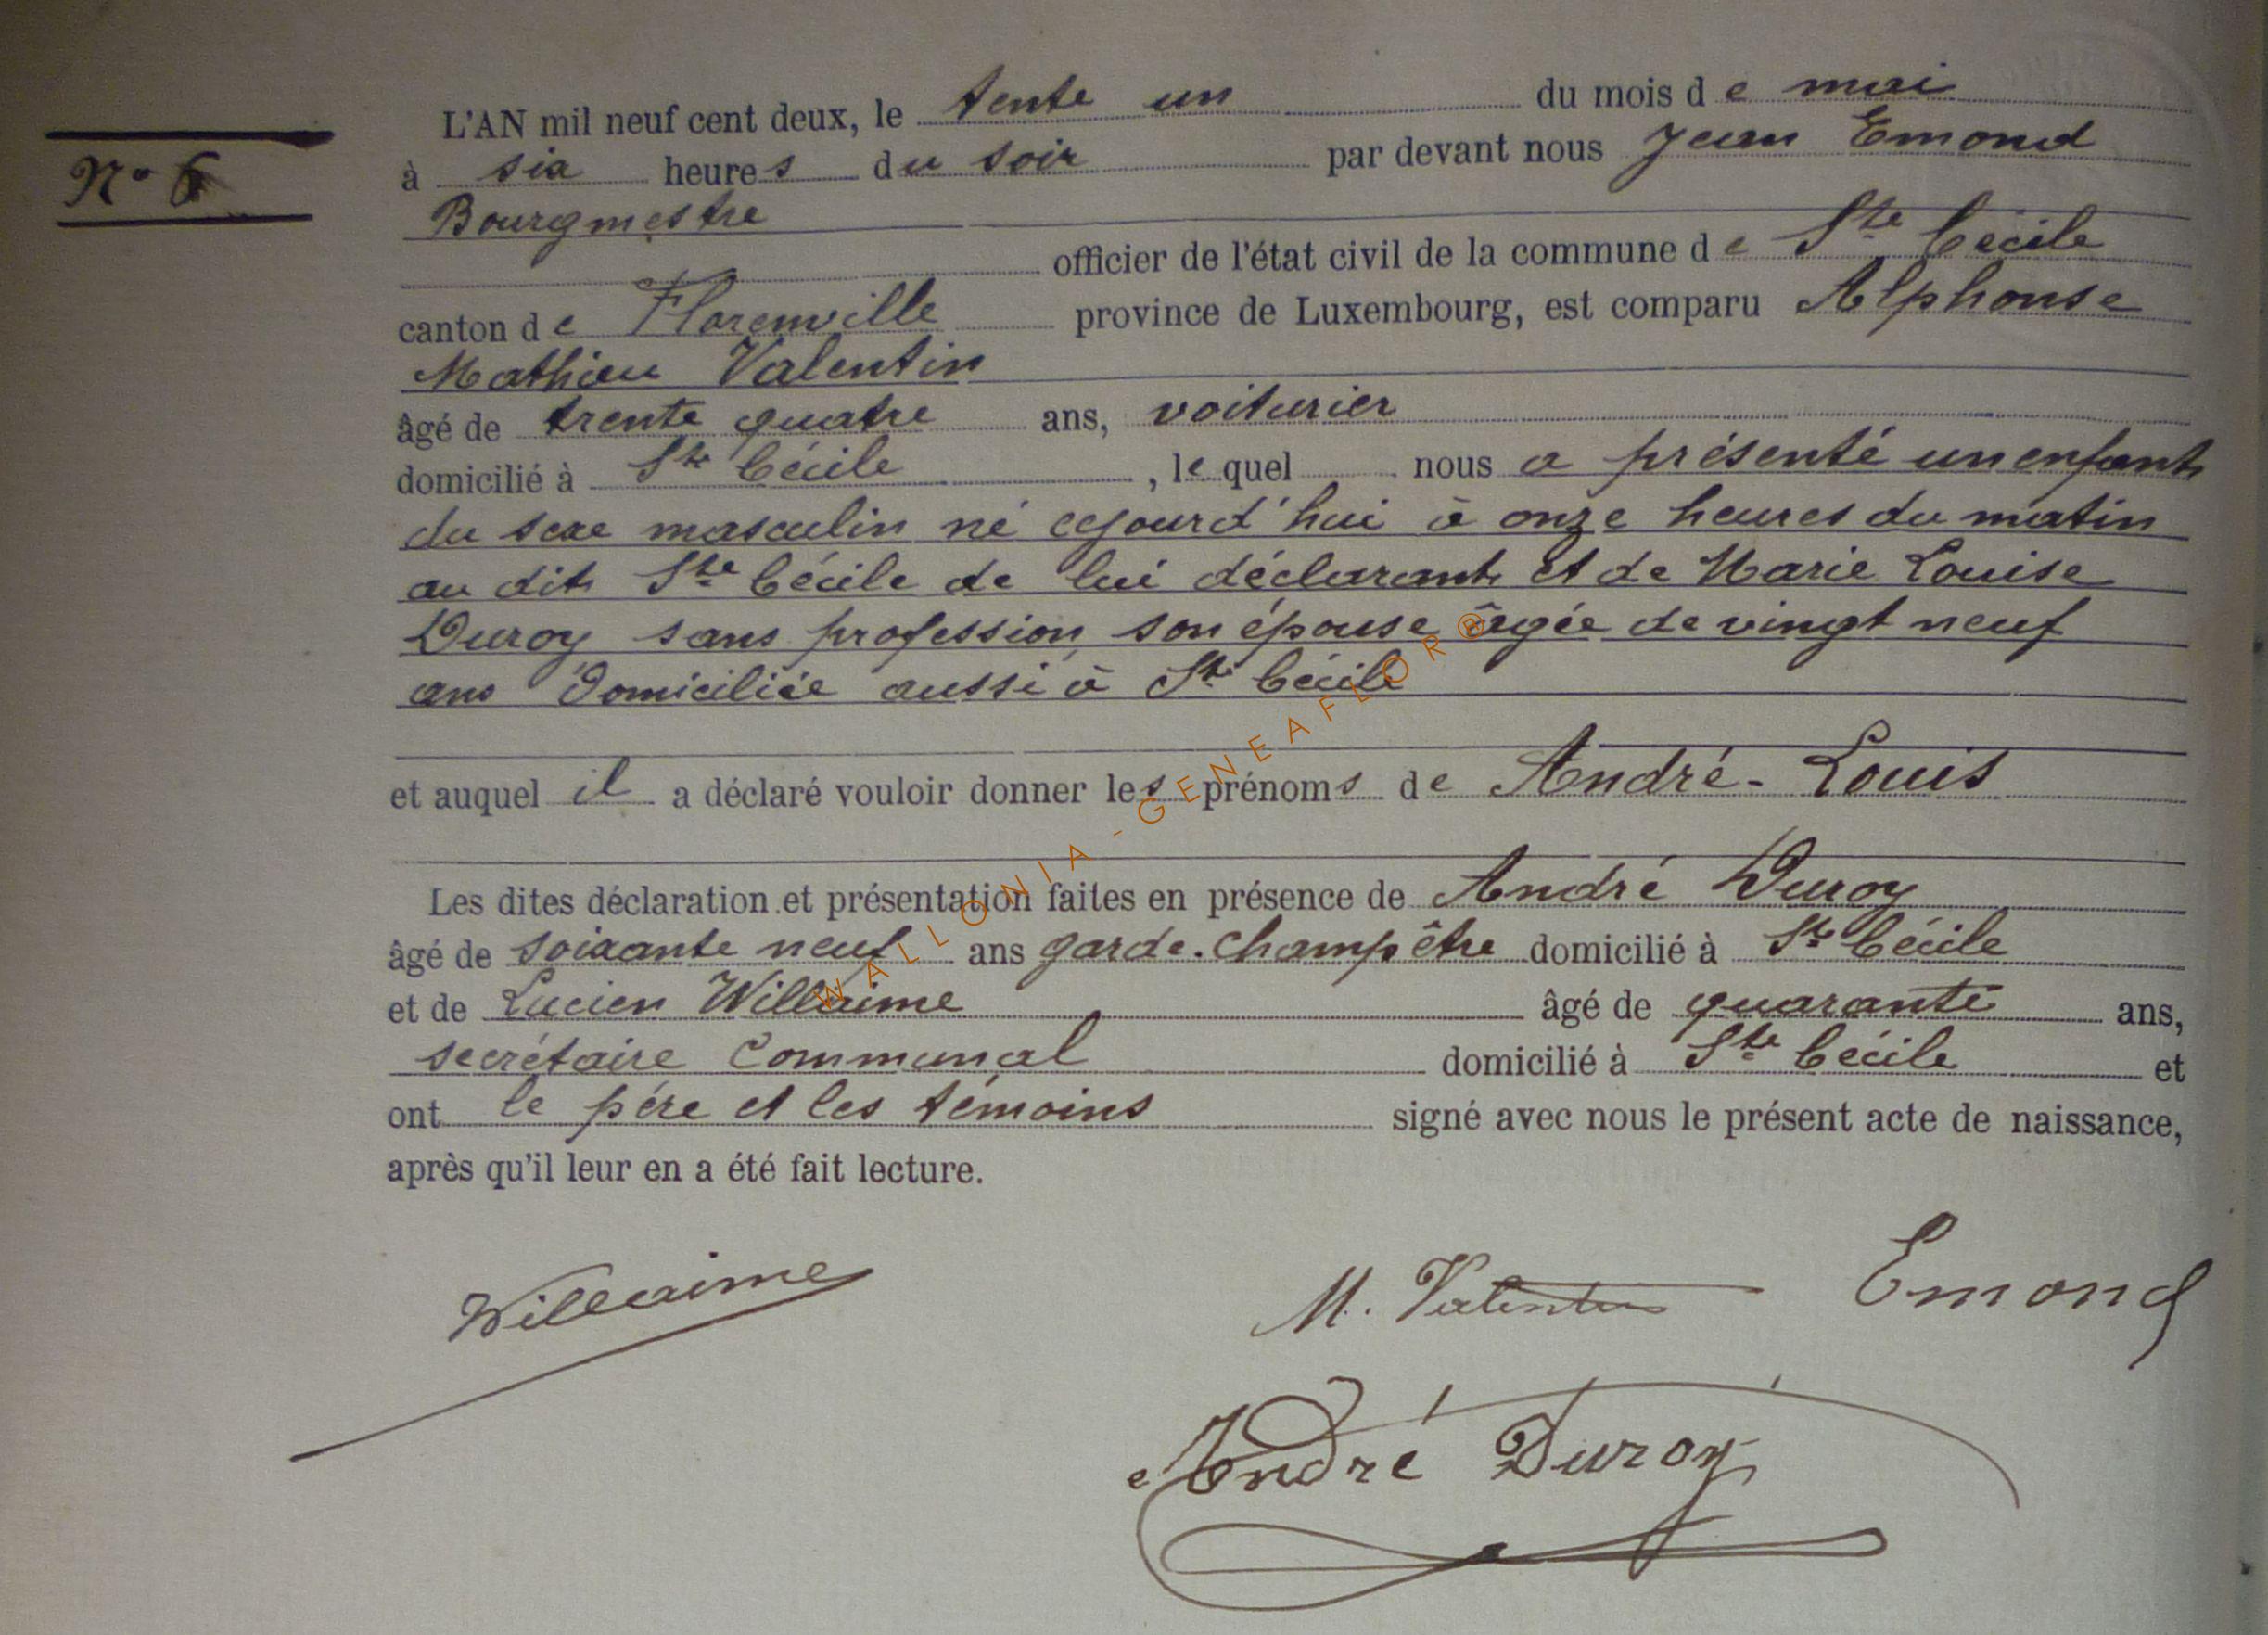 L'AN mil neuf cent deux, le tente un du mois de mai
N° 6
à six heures du soir par devant nous Jean Emond
Bourgmestre
officier de l'état civil de la commune de Ste Cécile
canton de Florenville province de Luxembourg, est comparu Alphonse
Mathieu Valentin
âgé de trente quatre ans, voiturier
domicilié à Ste Cécile, lequel nous a présenté un enfant
du sexe masculin né cejourd'hui à onze heures du matin
au dit Ste Cécile de lui déclarant et de Marie Louise
Duroy sans profession, son épouse âgée de vingt neuf
ans domiciliée aussi à Ste Cécile
et auquel il a déclaré vouloir donner les prénoms de André-Louis
Les dites déclaration et présentation faites en présence de André Duroy
âgé de soixante neuf ans garde-champêtre domicilié à Ste Cécile
et de Lucien Willaime âgé de quarante ans,
secrétaire communal domicilié à Ste Cécile et
ont le père et les témoins signé avec nous le présent acte de naissance,
après qu'il leur en a été fait lecture.
Willaime M. Valentin Emond
André Duroy
WALLONIA-GENEAFLOR®